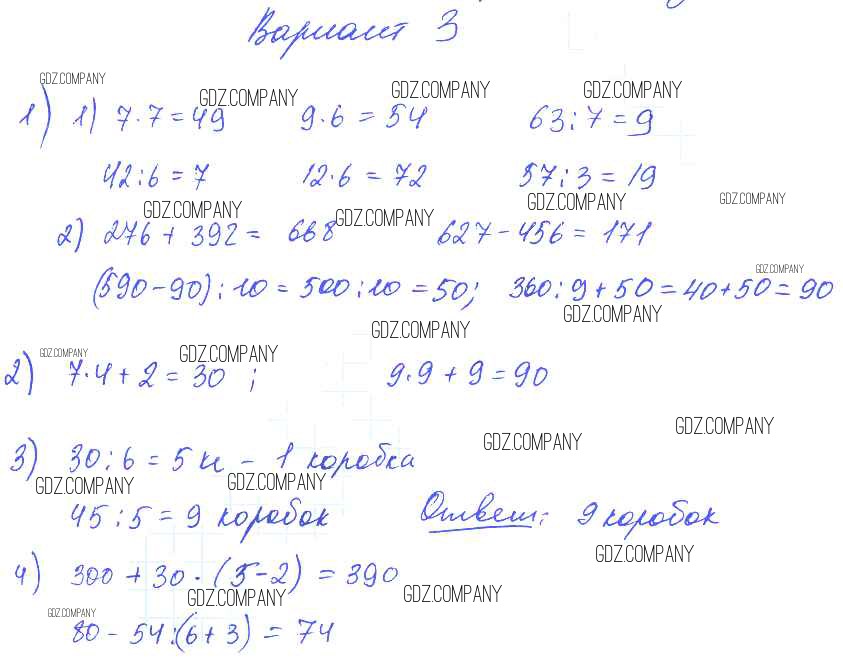 Вариант 3
GDZ.COMPANY
GDZ.COMPANY GDZ.COMPANY GDZ.COMPANY
1) 1) 7·7=49 9·6=54 63:7=9
42:6=7 12·6=72 57:3=19
GDZ.COMPANY GDZ.COMPANY GDZ.COMPANY GDZ.COMPANY
2) 276+392= 668 627-456=171
GDZ.COMPANY
(590-90):10=500:10=50; 360:9+50=40+50=90
GDZ.COMPANY
GDZ.COMPANY
GDZ.COMPANY GDZ.COMPANY
2) 7·4+2=30; 9·9+9=90
GDZ.COMPANY
GDZ.COMPANY
3) 30:6=5 кг - 1 коробка
GDZ.COMPANY GDZ.COMPANY
45:5=9 коробок Ответ: 9 коробок
GDZ.COMPANY
4) 300+30·(5-2)=390
GDZ.COMPANY GDZ.COMPANY
GDZ.COMPANY
80-54:(6+3)=74